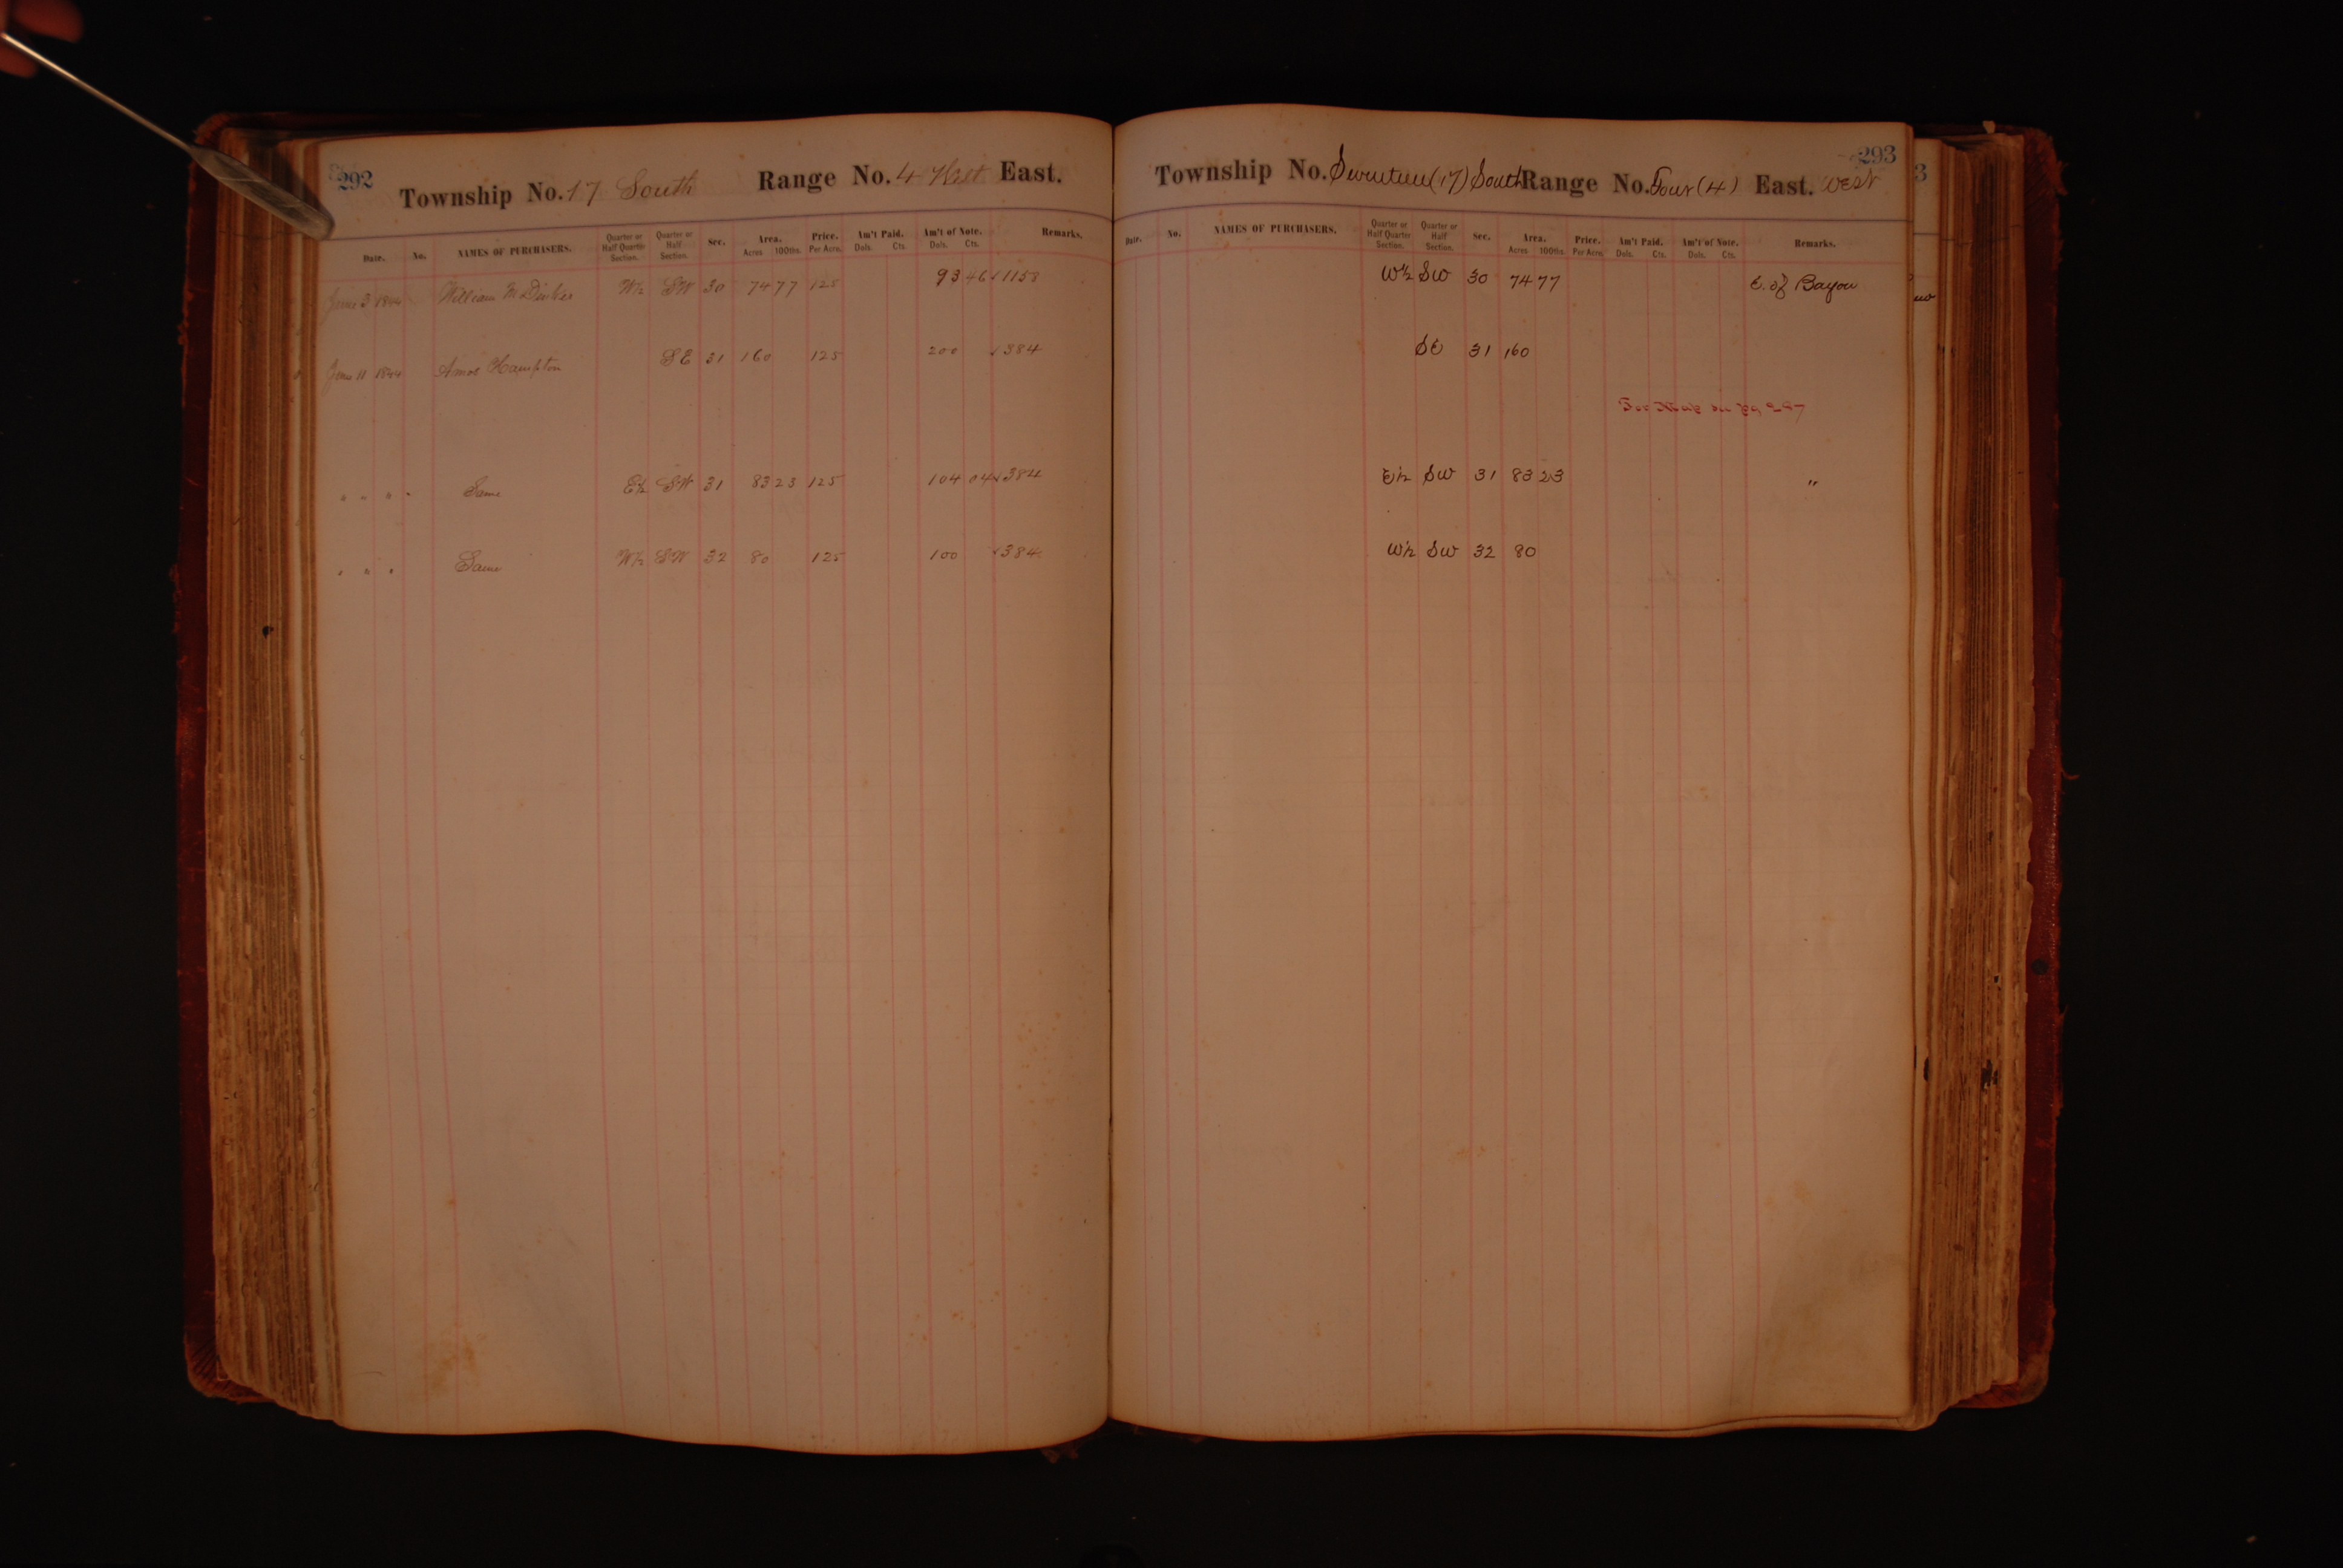 292
Township No. 17 South Range No. 4 West East.
Date. No. NAMES OF PURCHASERS. Quarter or Half Quarter Section. Quarter or Half Section. Sec. Area. Acres 100ths. Price. Per Acre. Am't Paid. Dols. Cts. Am't of Note. Dols. Cts. Remarks.
June 3 1844 William W½ SW 30 74 77 125 93 46 ✓1158
June 11 1844 Amos Hampton SE 31 160 125 200 ✓384
" " " " Same E½ SW 31 83 23 125 104 04 ✓384
" " " Same W½ SW 32 80 125 100 ✓384
293
Township No. Seventeen (17) South Range No. Four (4) East. West
Date. No. NAMES OF PURCHASERS. Quarter or Half Quarter Section. Quarter or Half Section. Sec. Area. Acres 100ths. Price. Per Acre. Am't Paid. Dols. Cts. Am't of Note. Dols. Cts. Remarks.
W½ SW 30 74 77 E. of Bayou
SE 31 160
For Map see Pg 287
E½ SW 31 83 23 "
W½ SW 32 80
3